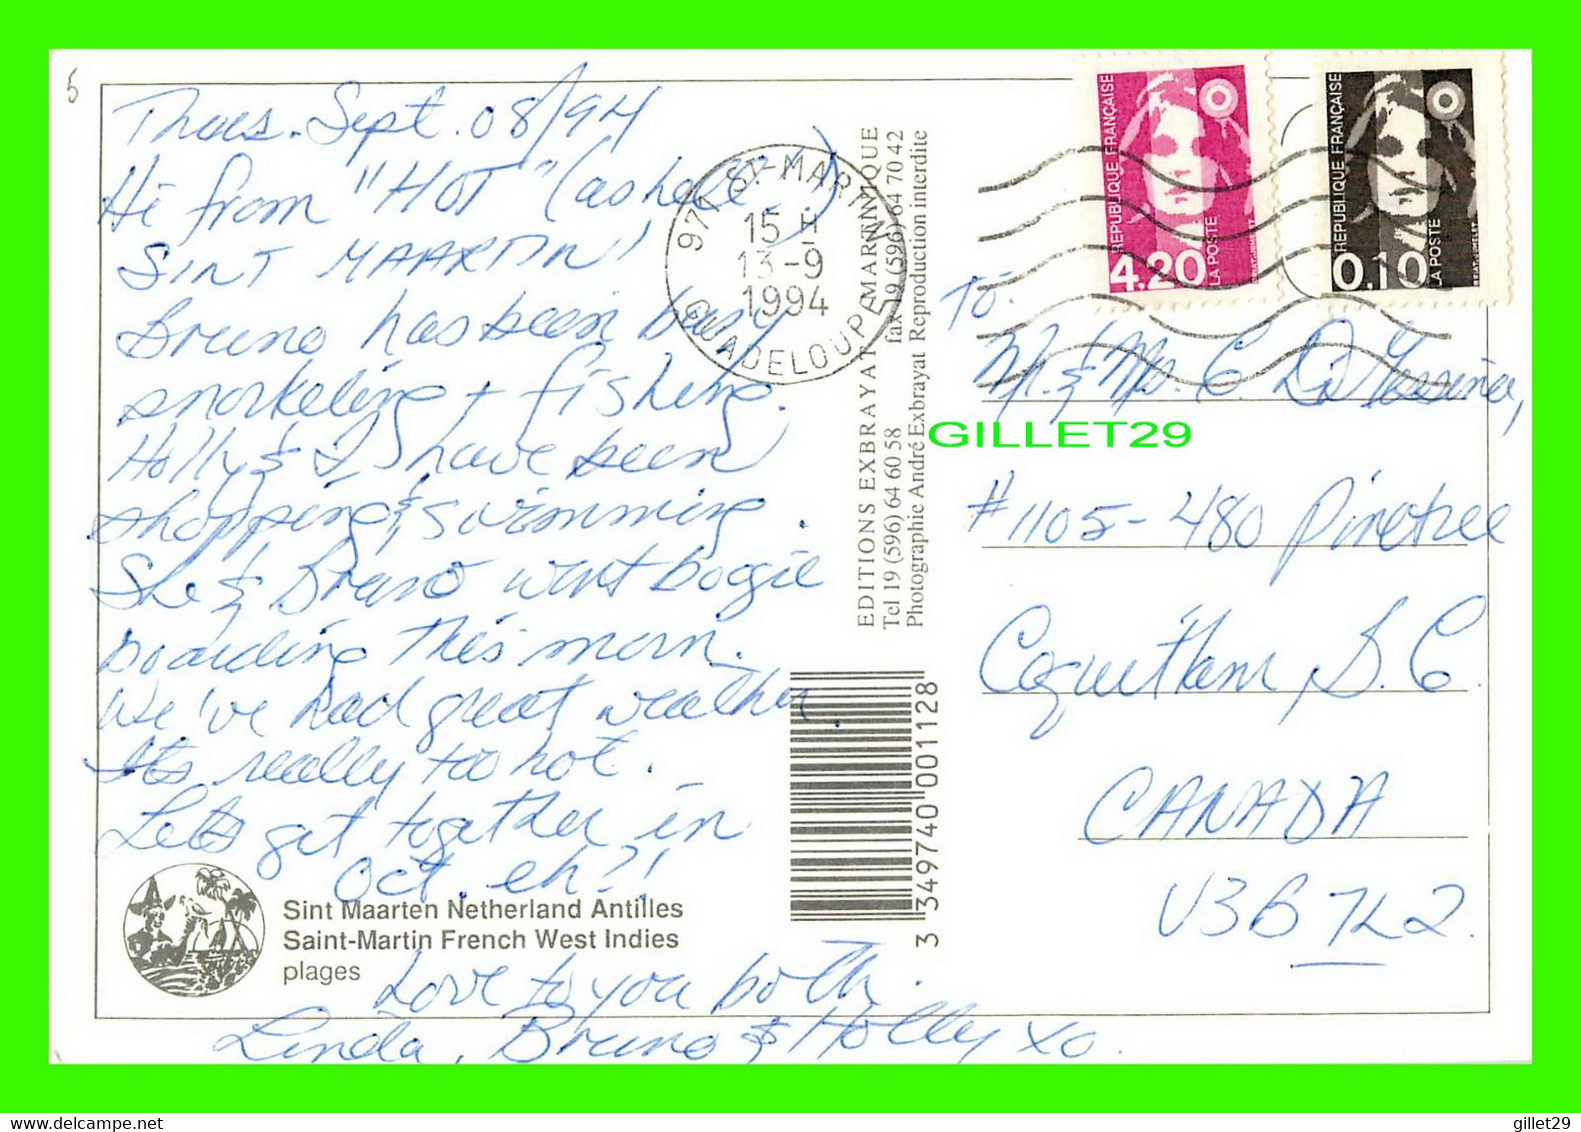 5
Thurs. Sept. 08/94
Hi from "HOT" (as hell!)
SINT MAARTIN!
Bruno has been busy
snorkeling + fishing.
Holly & I have been
shopping & swimming.
She & Bruno went boogie
boarding this morn.
We've had great weather.
It's really too hot.
Let's get together in
Oct. eh?!
Love to you both.
Linda, Bruno & Holly xo.
Sint Maarten Netherland Antilles
Saint-Martin French West Indies
plages
971 ST-MARTIN
15 H
13-9
1994
GUADELOUPE
EDITIONS EXBRAYAT MARTINIQUE
Tel 19 (596) 64 60 58 fax 19 (596) 64 70 42
Photographie André Exbrayat Reproduction interdite
3 349740 001128
REPUBLIQUE FRANÇAISE
4.20
LA POSTE
REPUBLIQUE FRANÇAISE
0.10
LA POSTE
To:
Mr. & Mrs. C. Di
GILLET29
#1105-480 Pinetree
Coquitlam B.C.
CANADA
V3B 7L2
http://www.delcampe.net
gillet29